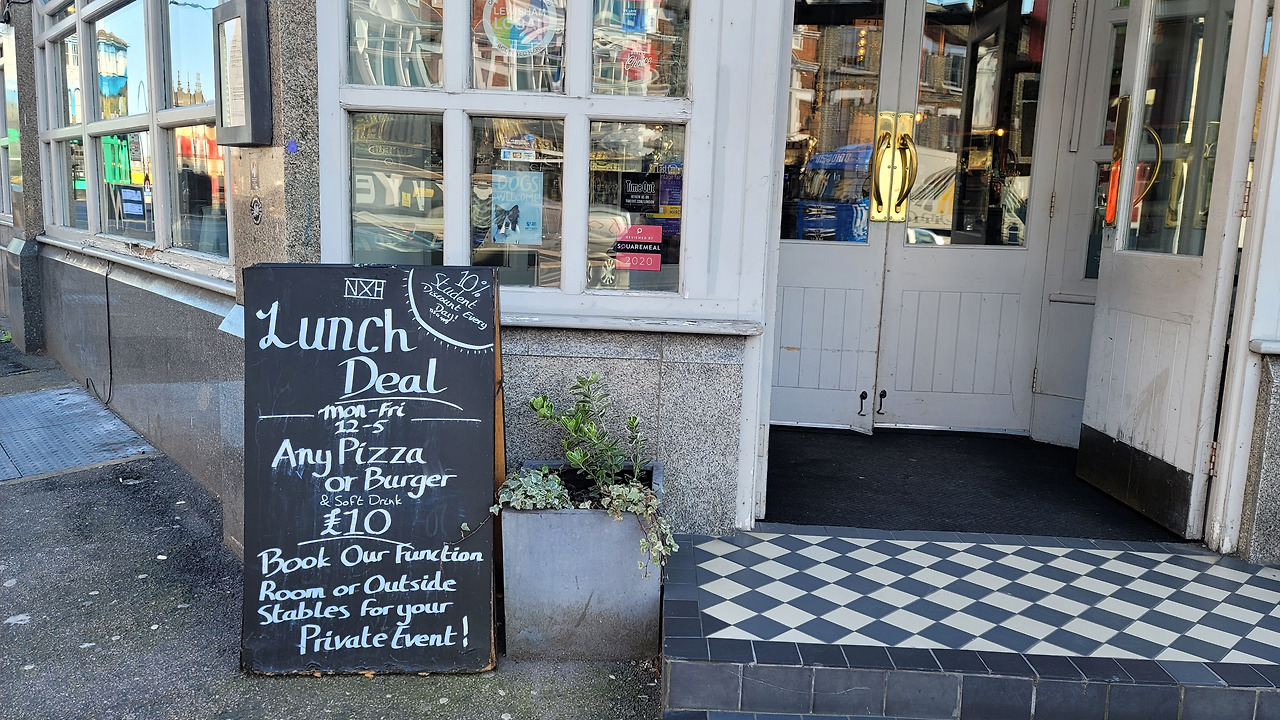 LEWISHAM
LOCAL
DOGS
WELCOME
TimeOut
REVIEWED BY
SQUAREMEAL
2020
NXH
10%
Student
Discount Every
Day!
Lunch
Deal
Mon-Fri
12-5
Any Pizza
or Burger
& Soft Drink
£10
Book Our Function
Room or Outside
Stables for your
Private Event!